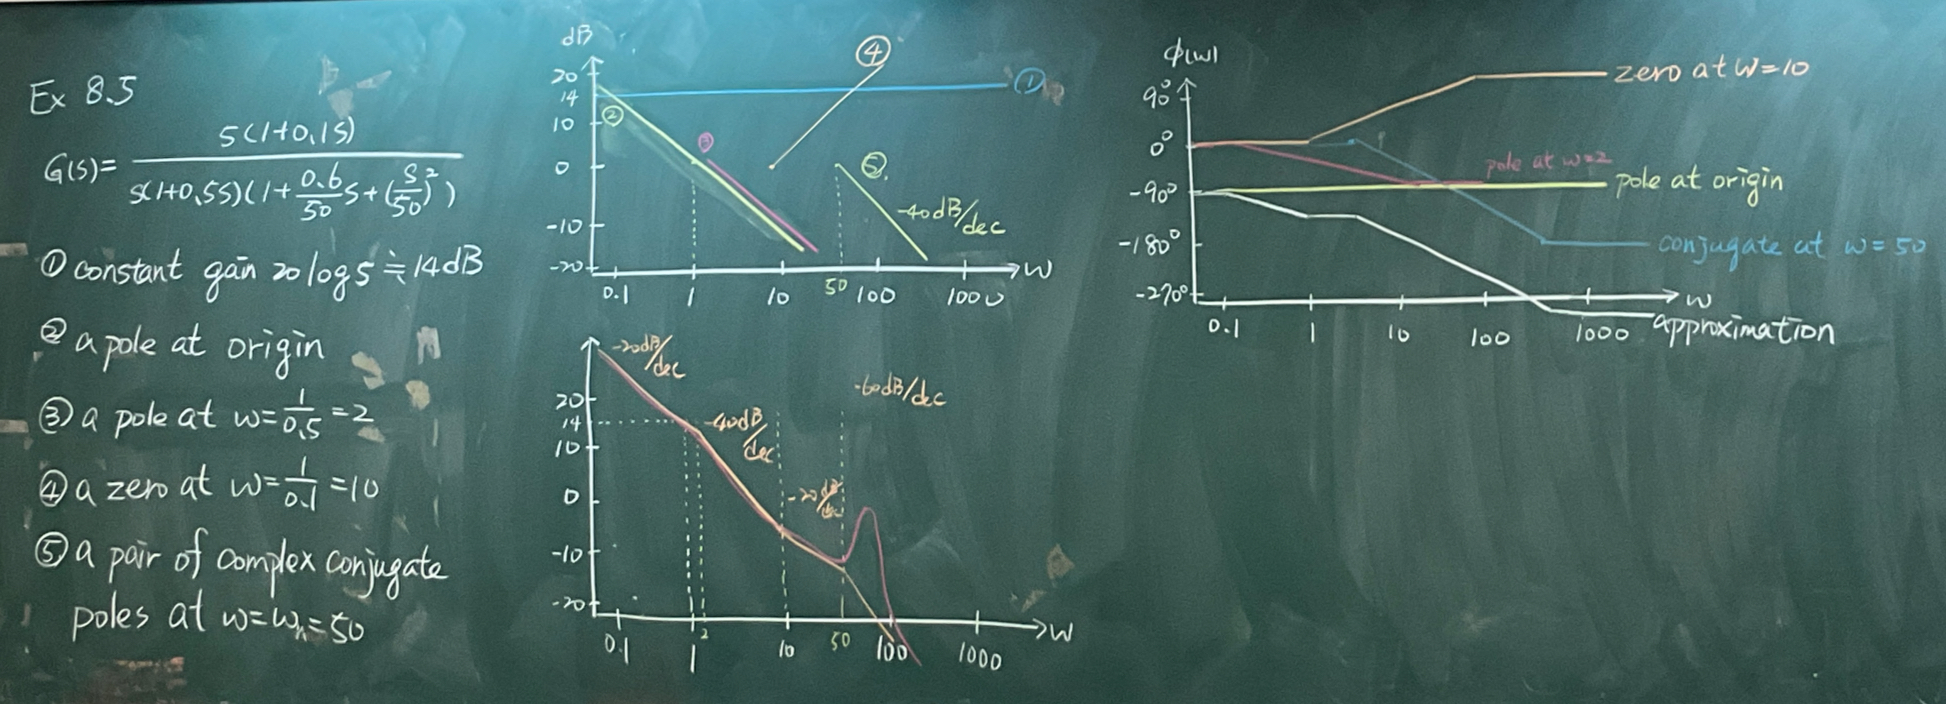 Ex 8.5
G(s)= 5(1+0.1s) / s(1+0.5s)(1+ 0.6/50 s+(s/50)²)
① constant gain 20log5≒14dB
② a pole at origin
③ a pole at w=1/0.5=2
④ a zero at w=1/0.1=10
⑤ a pair of complex conjugate
poles at w=wn=50
dB
20
14
10
0
-10
-20
①
②
③
④
⑤
-40dB/dec
0.1 1 10 50 100 1000 w
-20dB/dec
-40dB/dec
-20dB/dec
-60dB/dec
20
14
10
0
-10
-20
0.1 1 2 10 50 100 1000 w
ϕ(w)
90°
0°
-90°
-180°
-270°
zero at w=10
pole at w=2
pole at origin
conjugate at w=50
approximation
0.1 1 10 100 1000 w